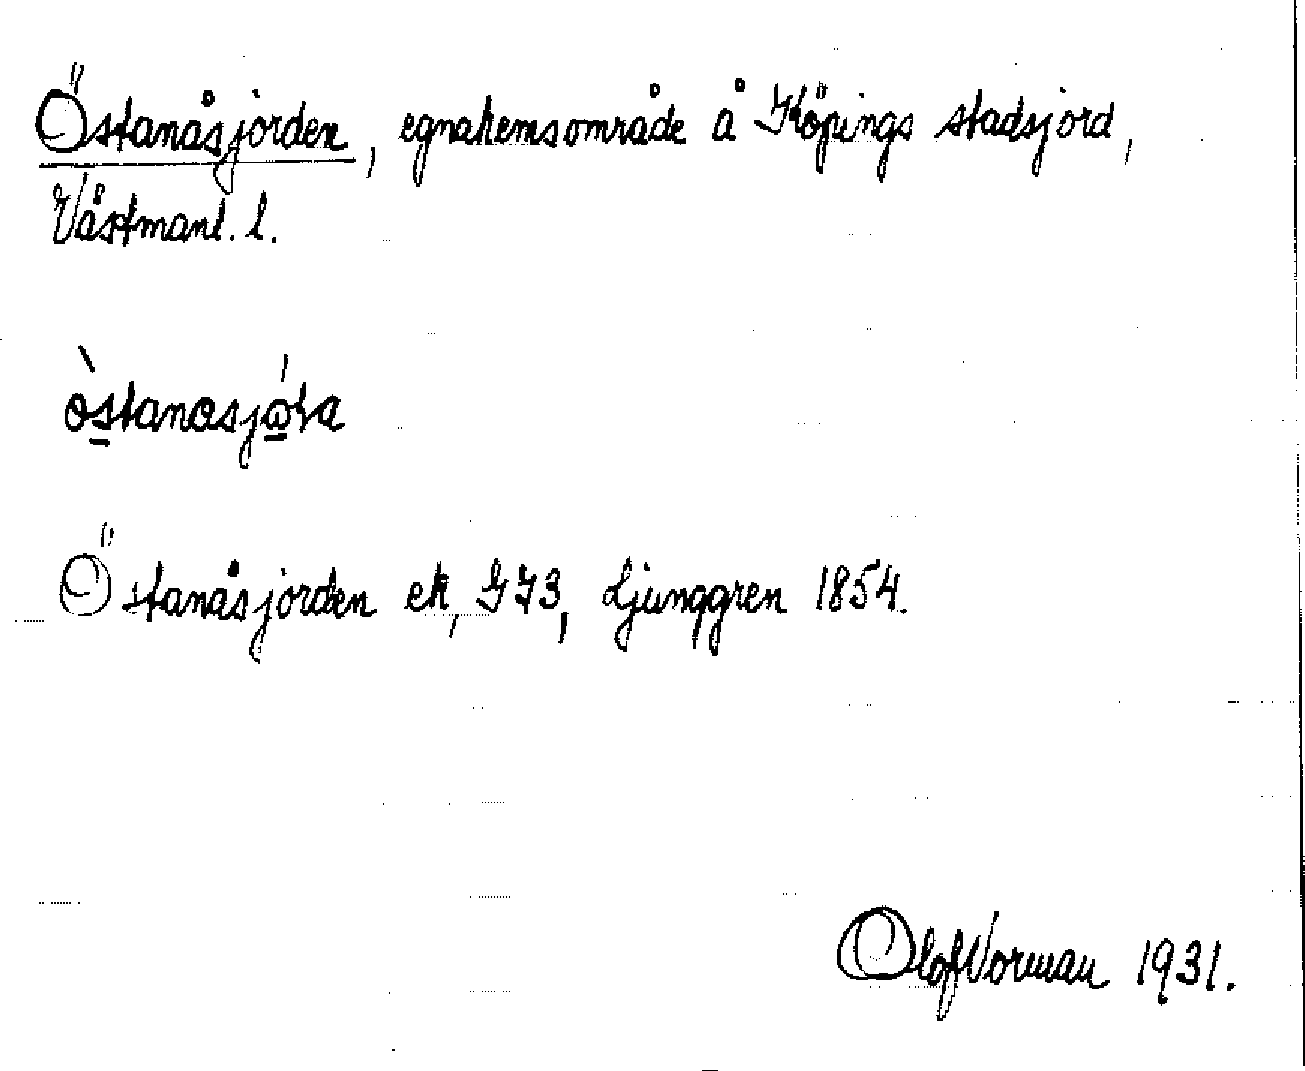 Östanåsjorden, egnahemsområde å Köpings stadsjord,
Västmanl. l.
Östanåsjorden ek, Ljunggren 1854.
Olof Norman 1931.